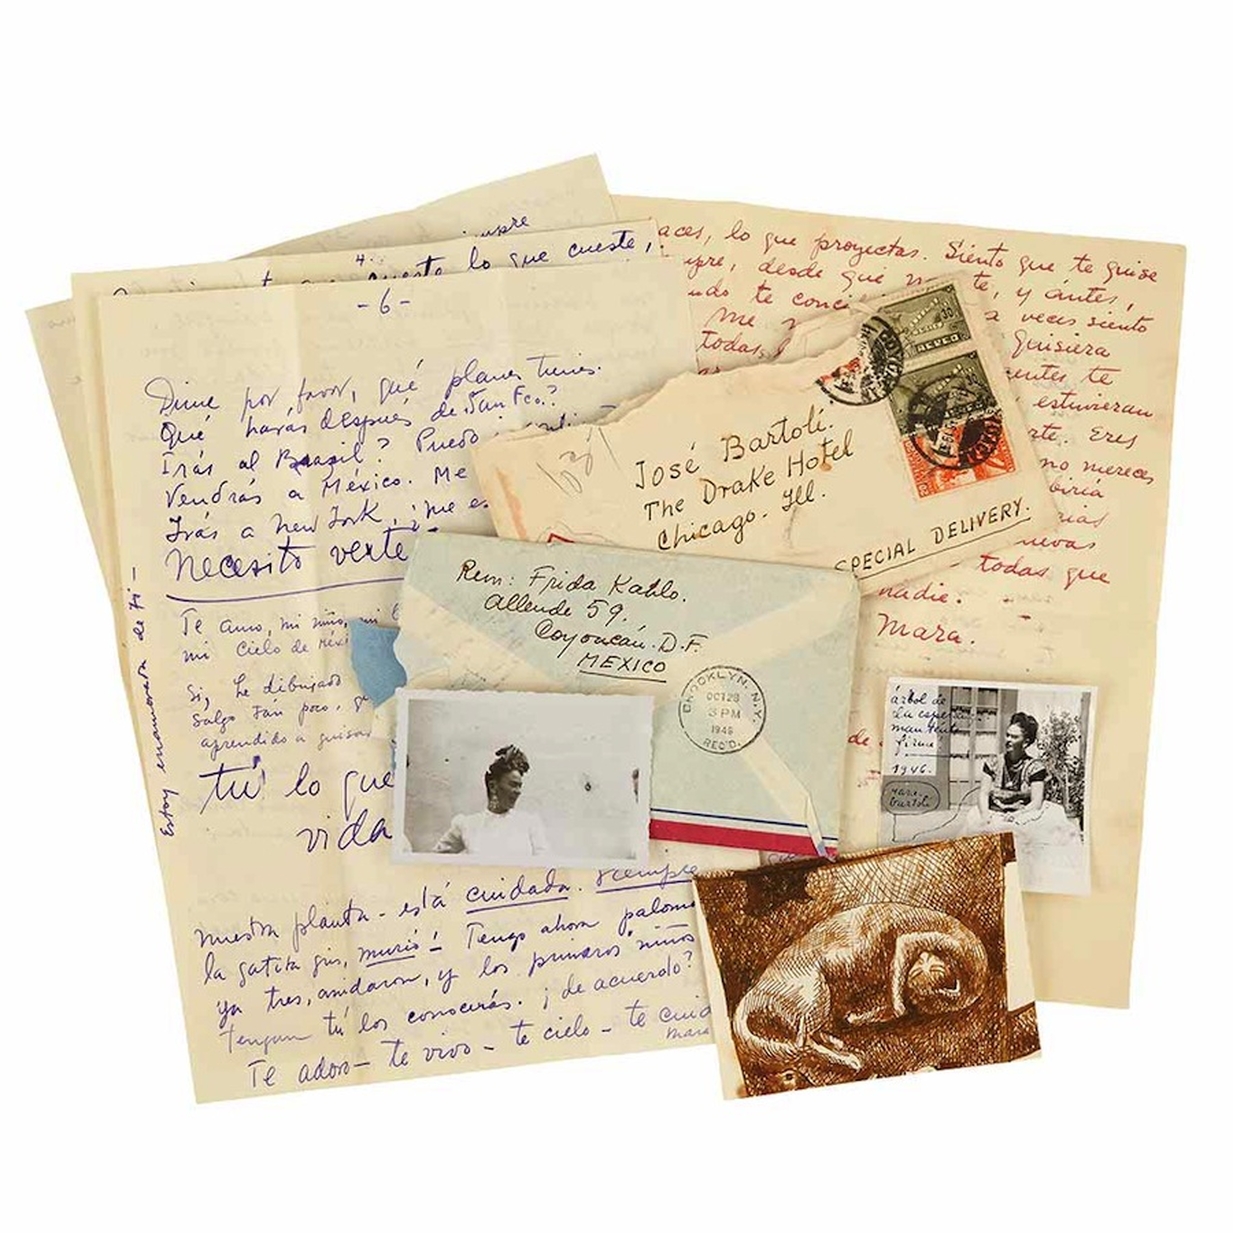 siempre
4.
lo que cueste,
-6-
Dime por favor, qué planes tienes.
Qué harás después de San Fco.?
Irás al Brazil? Puedo
Vendrás a México. Me
Irás a New York, ¡me es
Necesito verte
Te amo, mi niño, mi
mi cielo de Méxi
Si, he dibujado
Salgo tan poco, q
aprendido a guisar
tú lo que
vida
Estoy enamorada de ti -
nuestra planta - está cuidada. Siempre
la gatita gris, murió! Tengo ahora paloma
ya tres, anidaron, y los primeros niños
tengan tú los conocerás. ¿de acuerdo?
Te adoro - te vivo - te cielo - te cuid
Mara
aces, lo que proyectas. Siento que te quise
mpre, desde que n te, y antes,
ndo te conci
me a veces siento
todas, quisiera
entes te
estuvieran
rte. Eres
no mereces
biría
rias
nuevas
todas que
nadie.
Mara.
de
José Bartolí.
The Drake Hotel
Chicago. Ill.
SPECIAL DELIVERY.
30
MEXICO
Rem: Frida Kahlo.
Allende 59.
Coyoacán. D.F.
MEXICO
BROOKLYN, N.Y.
OCT 28
3 PM
1946
REC'D.
árbol de
la espera
mantente
firme
1946.
Mara.
Bartoli